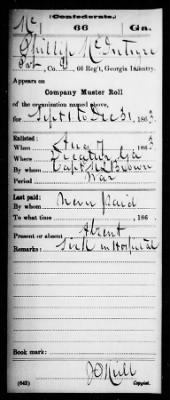 (Confederate.)
Mc 66 Ga.
Phillip McIntyre
Pvt, Co. , 66 Reg't, Georgia Infantry.
Appears on
Company Muster Roll
of the organization named above,
for Sept 1 to Dec 31, 186
Enlisted:
When Aug 7, 186
Where Decatur, Ga
By whom Capt Brown
Period War
Last paid:
By whom Never paid
To what time , 186 .
Present or absent Absent
Remarks: Sick in Hospital
Book mark:
(642) Copyist.